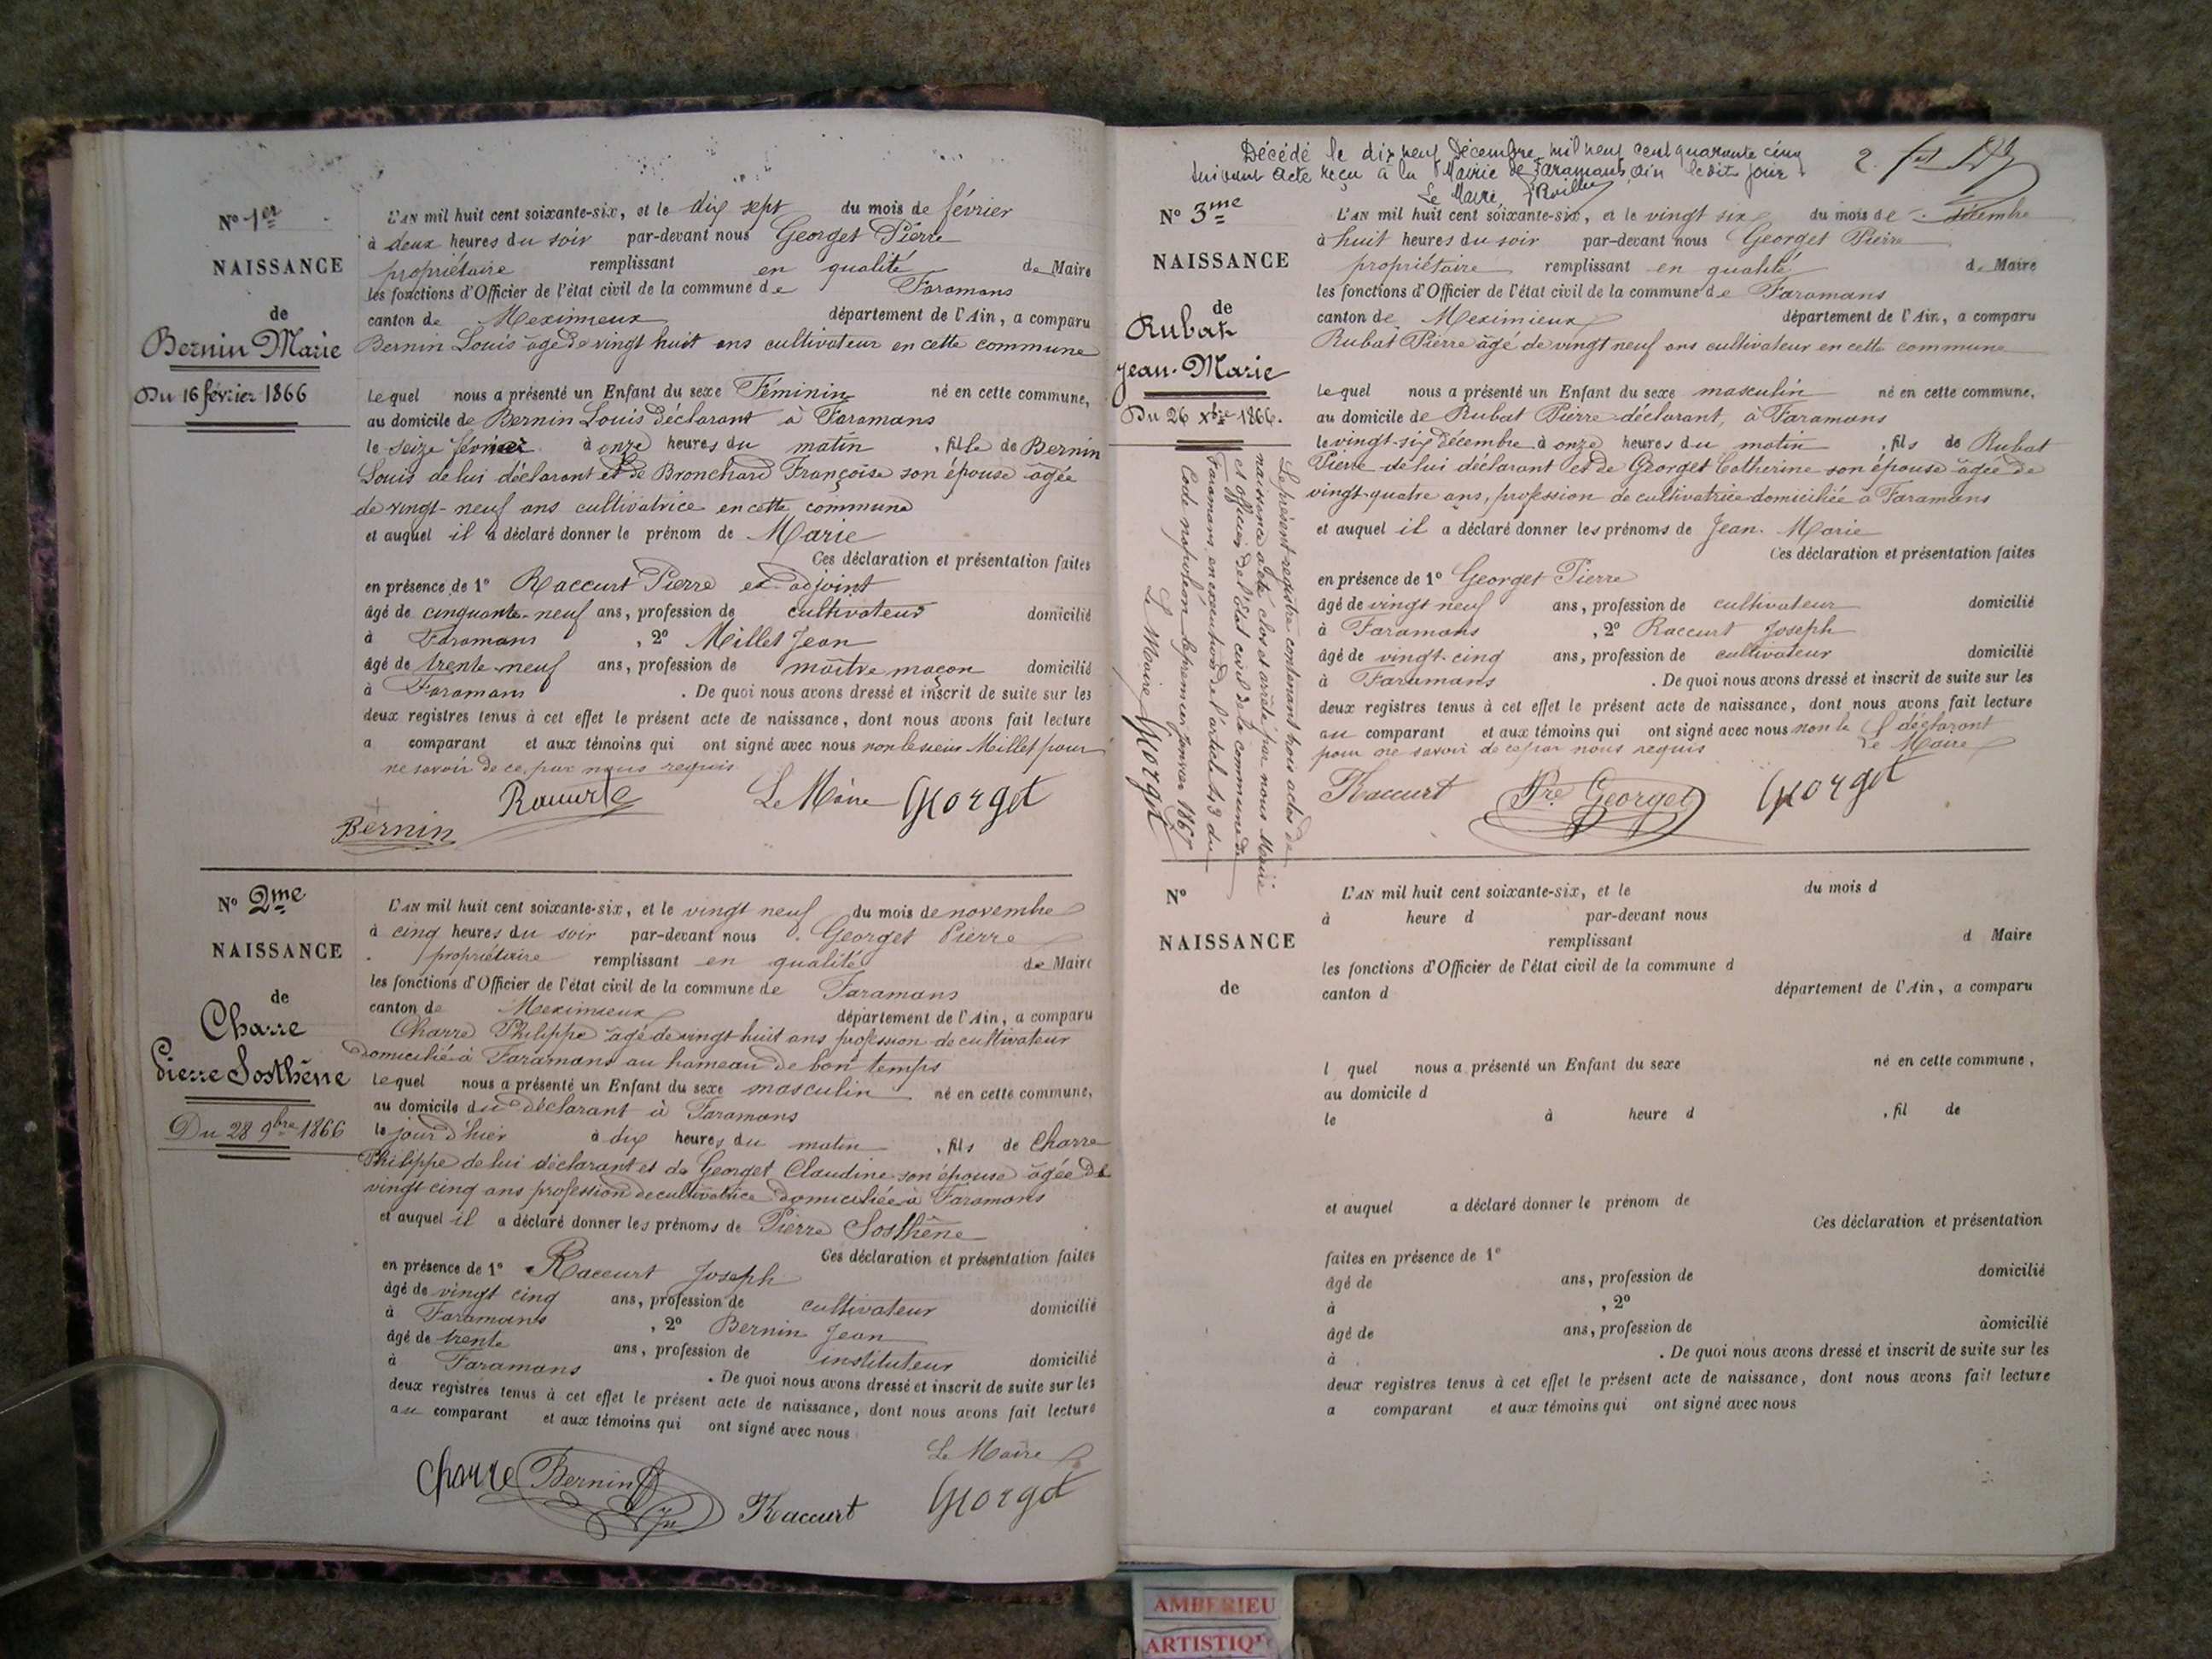 N° 1er
NAISSANCE
de
Bernin Marie
Du 16 février 1866
L'AN mil huit cent soixante-six, et le dix sept du mois de février
à deux heures du soir par-devant nous Georget Pierre
propriétaire remplissant en qualité de Maire
les fonctions d'Officier de l'état civil de la commune de Faramans
canton de Meximieux département de l'Ain, a comparu
Bernin Louis âgé de vingt huit ans cultivateur en cette commune
lequel nous a présenté un Enfant du sexe Féminin né en cette commune,
au domicile de Bernin Louis déclarant à Faramans
le seize février à onze heures du matin, fille de Bernin
Louis de lui déclarant et de Bronchard Françoise son épouse âgée
de vingt-neuf ans cultivatrice en cette commune
et auquel il a déclaré donner le prénom de Marie
Ces déclaration et présentation faites
en présence de 1° Raccurt Pierre ex-adjoint
âgé de cinquante-neuf ans, profession de cultivateur domicilié
à Faramans, 2° Millet Jean
âgé de trente-neuf ans, profession de maître maçon domicilié
à Faramans. De quoi nous avons dressé et inscrit de suite sur les
deux registres tenus à cet effet le présent acte de naissance, dont nous avons fait lecture
a comparant et aux témoins qui ont signé avec nous non le sieur Millet pour
ne savoir de ce par nous requis
Bernin Raccurt Le Maire Georget
N° 2me
NAISSANCE
de
Charre
Pierre Sosthène
Du 28 9bre 1866
L'AN mil huit cent soixante-six, et le vingt neuf du mois de novembre
à cinq heures du soir par-devant nous Georget Pierre
propriétaire remplissant en qualité de Maire
les fonctions d'Officier de l'état civil de la commune de Faramans
canton de Meximieux département de l'Ain, a comparu
Charre Philippe âgé de vingt huit ans profession de cultivateur
domicilié à Faramans au hameau de bon temps
lequel nous a présenté un Enfant du sexe masculin né en cette commune,
au domicile du déclarant à Faramans
le jour d'hier à dix heures du matin, fils de Charre
Philippe de lui déclarant et de Georget Claudine son épouse âgée de
vingt cinq ans profession de cultivatrice domiciliée à Faramans
et auquel il a déclaré donner les prénoms de Pierre Sosthène
Ces déclaration et présentation faites
en présence de 1° Raccurt Joseph
âgé de vingt cinq ans, profession de cultivateur domicilié
à Faramans, 2° Bernin Jean
âgé de trente ans, profession de instituteur domicilié
à Faramans. De quoi nous avons dressé et inscrit de suite sur les
deux registres tenus à cet effet le présent acte de naissance, dont nous avons fait lecture
au comparant et aux témoins qui ont signé avec nous
Le Maire
Charre Bernin Jn Raccurt Georget
Décédé le dix neuf Décembre mil neuf cent quarante cinq
suivant acte reçu à la Mairie de Faramans, Ain le dit jour.
Le Maire
N° 3me
NAISSANCE
de
Rubat
Jean-Marie
Du 26 Xbre 1866.
L'AN mil huit cent soixante-six, et le vingt six du mois de décembre
à huit heures du soir par-devant nous Georget Pierre
propriétaire remplissant en qualité de Maire
les fonctions d'Officier de l'état civil de la commune de Faramans
canton de Meximieux département de l'Ain, a comparu
Rubat Pierre âgé de vingt neuf ans cultivateur en cette commune
lequel nous a présenté un Enfant du sexe masculin né en cette commune,
au domicile de Rubat Pierre déclarant, à Faramans
le vingt-six décembre à onze heures du matin, fils de Rubat
Pierre de lui déclarant et de Georget Catherine son épouse âgée de
vingt-quatre ans, profession de cultivatrice domiciliée à Faramans
et auquel il a déclaré donner les prénoms de Jean-Marie
Ces déclaration et présentation faites
en présence de 1° Georget Pierre
âgé de vingt neuf ans, profession de cultivateur domicilié
à Faramans, 2° Raccurt Joseph
âgé de vingt-cinq ans, profession de cultivateur domicilié
à Faramans. De quoi nous avons dressé et inscrit de suite sur les
deux registres tenus à cet effet le présent acte de naissance, dont nous avons fait lecture
au comparant et aux témoins qui ont signé avec nous non le déclarant
pour ne savoir de ce par nous requis Le Maire
Raccurt Pre Georget Georget
Le présent registre contenant trois actes de
naissance a été clos et arrêté par nous Maire
et officier de l'Etat civil de la commune de
Faramans, en exécution de l'article 43 du
Code napoléon le premier Janvier 1867
Le Maire Georget
N°
NAISSANCE
de
L'AN mil huit cent soixante-six, et le du mois d
à heure d par-devant nous
remplissant d Maire
les fonctions d'Officier de l'état civil de la commune d
canton d département de l'Ain, a comparu
l quel nous a présenté un Enfant du sexe né en cette commune,
au domicile d
le à heure d, fil de
et auquel a déclaré donner le prénom de
Ces déclaration et présentation
faites en présence de 1°
âgé de ans, profession de domicilié
à, 2°
âgé de ans, profession de domicilié
à. De quoi nous avons dressé et inscrit de suite sur les
deux registres tenus à cet effet le présent acte de naissance, dont nous avons fait lecture
a comparant et aux témoins qui ont signé avec nous
AMBERIEU
ARTISTIQ